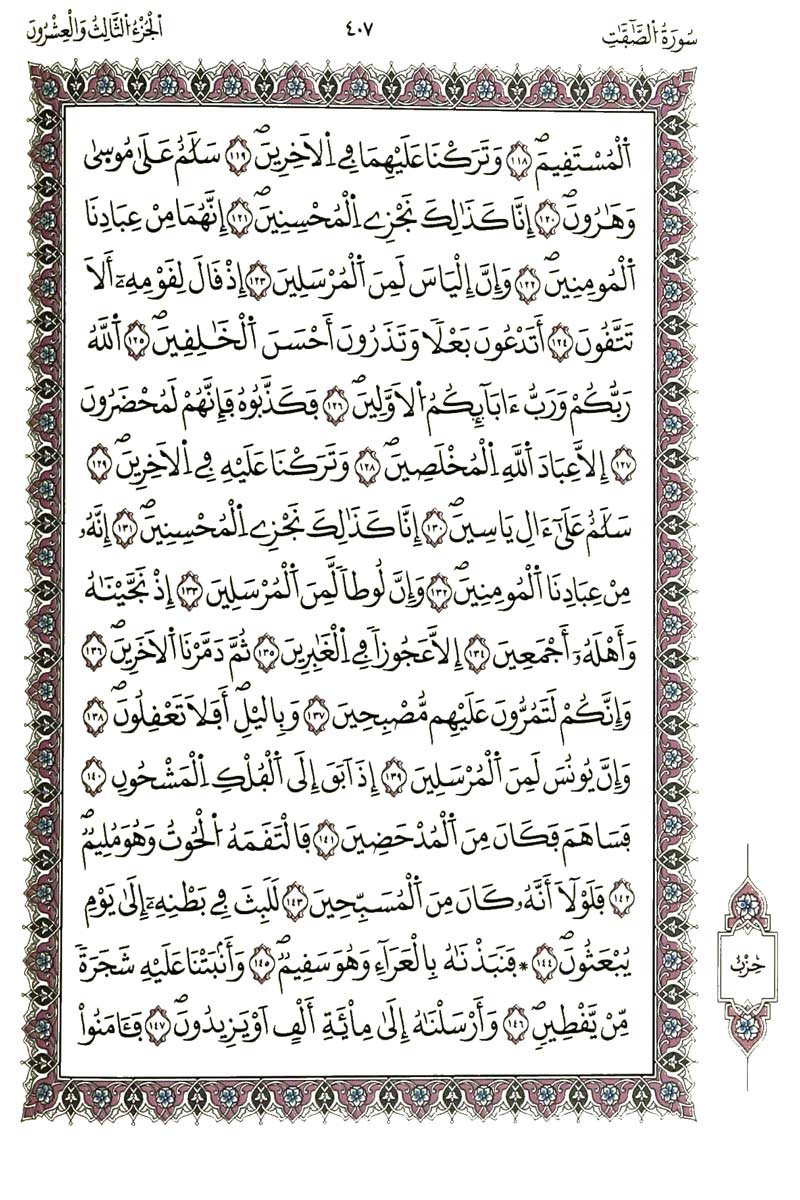 سُورَةُ الصَّٰٓفَّٰتِ
٤٠٧
الْجُزْءُ الثَّالِثُ وَالْعِشْرُونَ
اَ۬لْمُسْتَقِيمَۖ ١١٨ وَتَرَكْنَا عَلَيْهِمَا فِي اِ۬لَاخِرِينَۖ ١١٩ سَلَٰمٌ عَلَىٰ مُوس۪ىٰ
وَهَٰرُونَۖ ١٢٠ إِنَّا كَذَٰلِكَ نَجْزِے اِ۬لْمُحْسِنِينَۖ ١٢١ إِنَّهُمَا مِنْ عِبَادِنَا
اَ۬لْمُومِنِينَۖ ١٢٢ وَإِنَّ إِلْيَاسَ لَمِنَ اَ۬لْمُرْسَلِينَ ١٢٣ إِذْ قَالَ لِقَوْمِهِۦٓ أَلَا
تَتَّقُونَ ١٢٤ أَتَدْعُونَ بَعْلاٗ وَتَذَرُونَ أَحْسَنَ اَ۬لْخَٰلِقِينَۖ ١٢٥ اَ۬للَّهُ
رَبُّكُمْ وَرَبُّ ءَابَآئِكُمُ اُ۬لَاوَّلِينَۖ ١٢٦ فَكَذَّبُوهُ فَإِنَّهُمْ لَمُحْضَرُونَ
١٢٧ إِلَّا عِبَادَ اَ۬للَّهِ اِ۬لْمُخْلَصِينَۖ ١٢٨ وَتَرَكْنَا عَلَيْهِ فِي اِ۬لَاخِرِينَۖ ١٢٩
سَلَٰمٌ عَلَىٰٓ ءَالِ يَاسِينَۖ ١٣٠ إِنَّا كَذَٰلِكَ نَجْزِے اِ۬لْمُحْسِنِينَۖ ١٣١ إِنَّهُۥ
مِنْ عِبَادِنَا اَ۬لْمُومِنِينَۖ ١٣٢ وَإِنَّ لُوطاٗ لَّمِنَ اَ۬لْمُرْسَلِينَ ١٣٣ إِذْ نَجَّيْنَٰهُ
وَأَهْلَهُۥٓ أَجْمَعِينَ ١٣٤ إِلَّا عَجُوزاٗ فِي اِ۬لْغَٰبِرِينَ ١٣٥ ثُمَّ دَمَّرْنَا اَ۬لَاخَرِينَۖ ١٣٦
وَإِنَّكُمْ لَتَمُرُّونَ عَلَيْهِم مُّصْبِحِينَ ١٣٧ وَبِاليْلِۖ أَفَلَا تَعْقِلُونَۖ ١٣٨
وَإِنَّ يُونُسَ لَمِنَ اَ۬لْمُرْسَلِينَ ١٣٩ إِذَ اَبَقَ إِلَى اَ۬لْفُلْكِ اِ۬لْمَشْحُونِ ١٤٠
فَسَاهَمَ فَكَانَ مِنَ اَ۬لْمُدْحَضِينَ ١٤١ فَالْتَقَمَهُ اُ۬لْحُوتُ وَهُوَ مُلِيمٞۖ
١٤٢ فَلَوْلَآ أَنَّهُۥ كَانَ مِنَ اَ۬لْمُسَبِّحِينَ ١٤٣ لَلَبِثَ فِي بَطْنِهِۦٓ إِلَىٰ يَوْمِ
يُبْعَثُونَۖ ١٤٤ * فَنَبَذْنَٰهُ بِالْعَرَآءِ وَهُوَ سَقِيمٞۖ ١٤٥ وَأَنۢبَتْنَا عَلَيْهِ شَجَرَةٗ
مِّنْ يَّقْطِينٖۖ ١٤٦ وَأَرْسَلْنَٰهُ إِلَىٰ مِاْئَةِ أَلْفٍ اَوْ يَزِيدُونَۖ ١٤٧ فَـَٔامَنُواْ
حِزْبُ